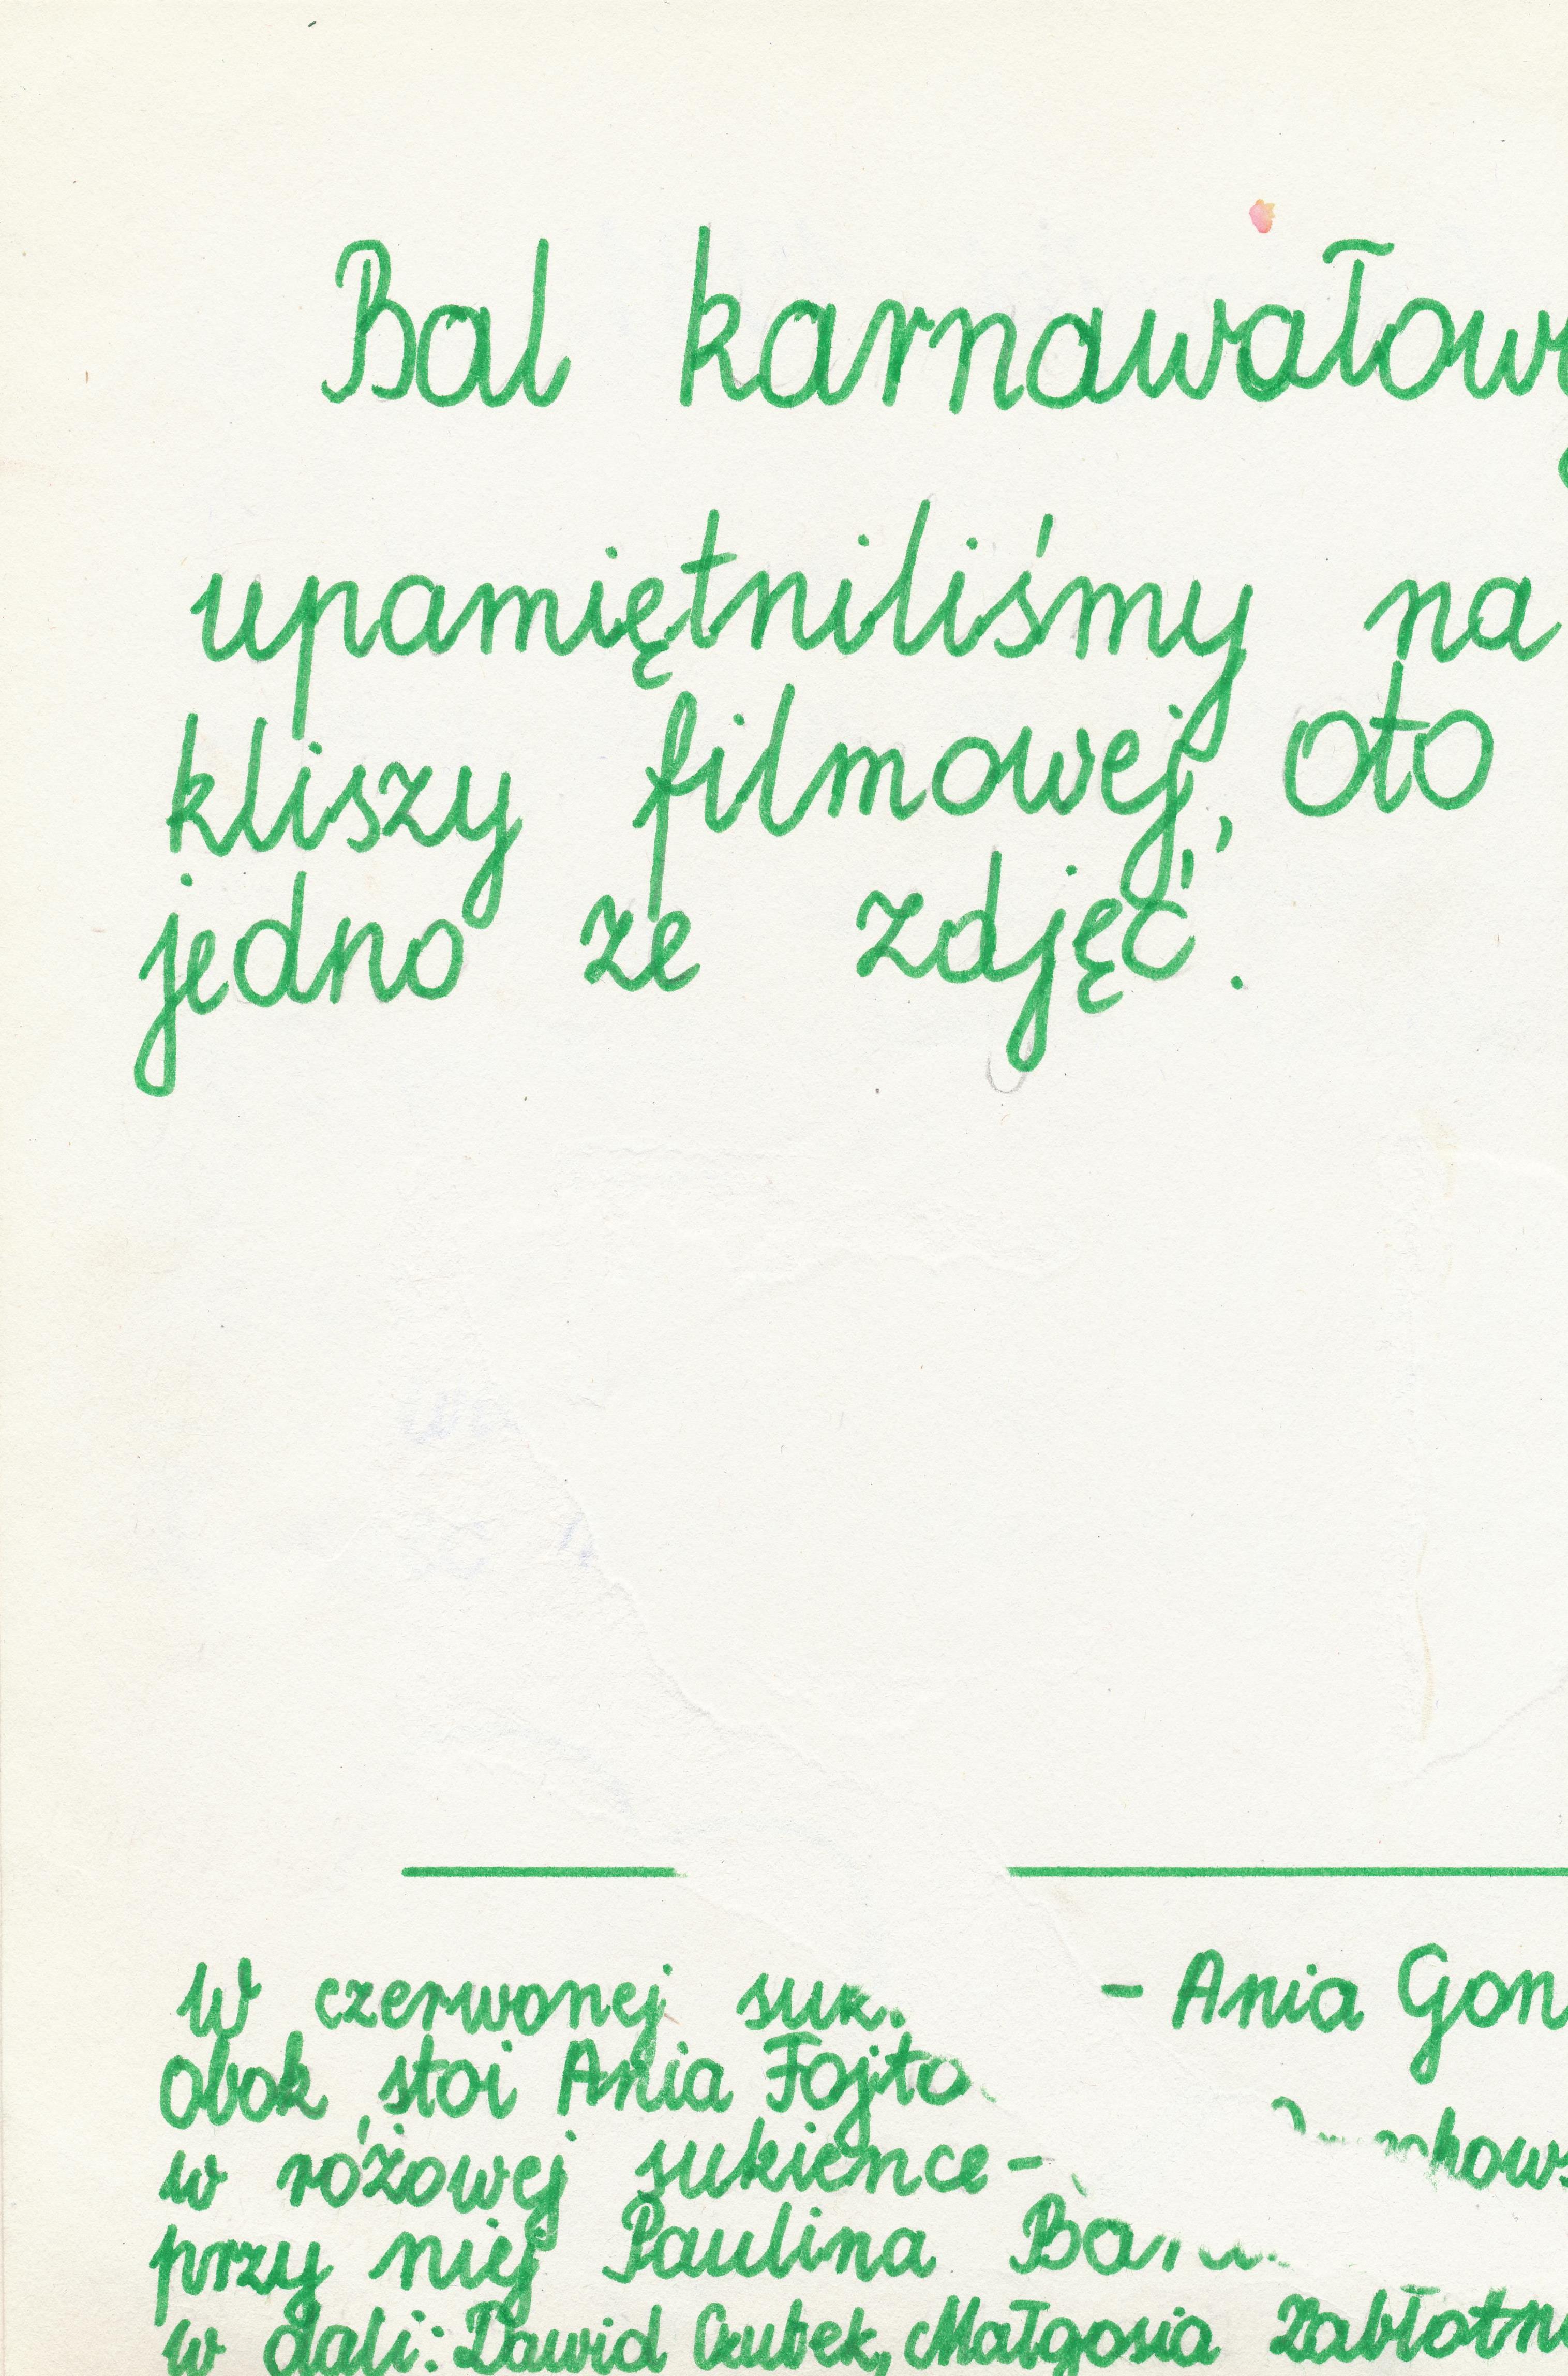 Bal karnawałowy
upamiętniliśmy na
kliszy filmowej, Oto
jedno ze zdjęć.
W czerwonej suk. - Ania Gon
obok stoi Ania Fojto
w różowej sukience -
przy niej Paulina
w dali: Dawid Czubek, Małgosia Zabłotn